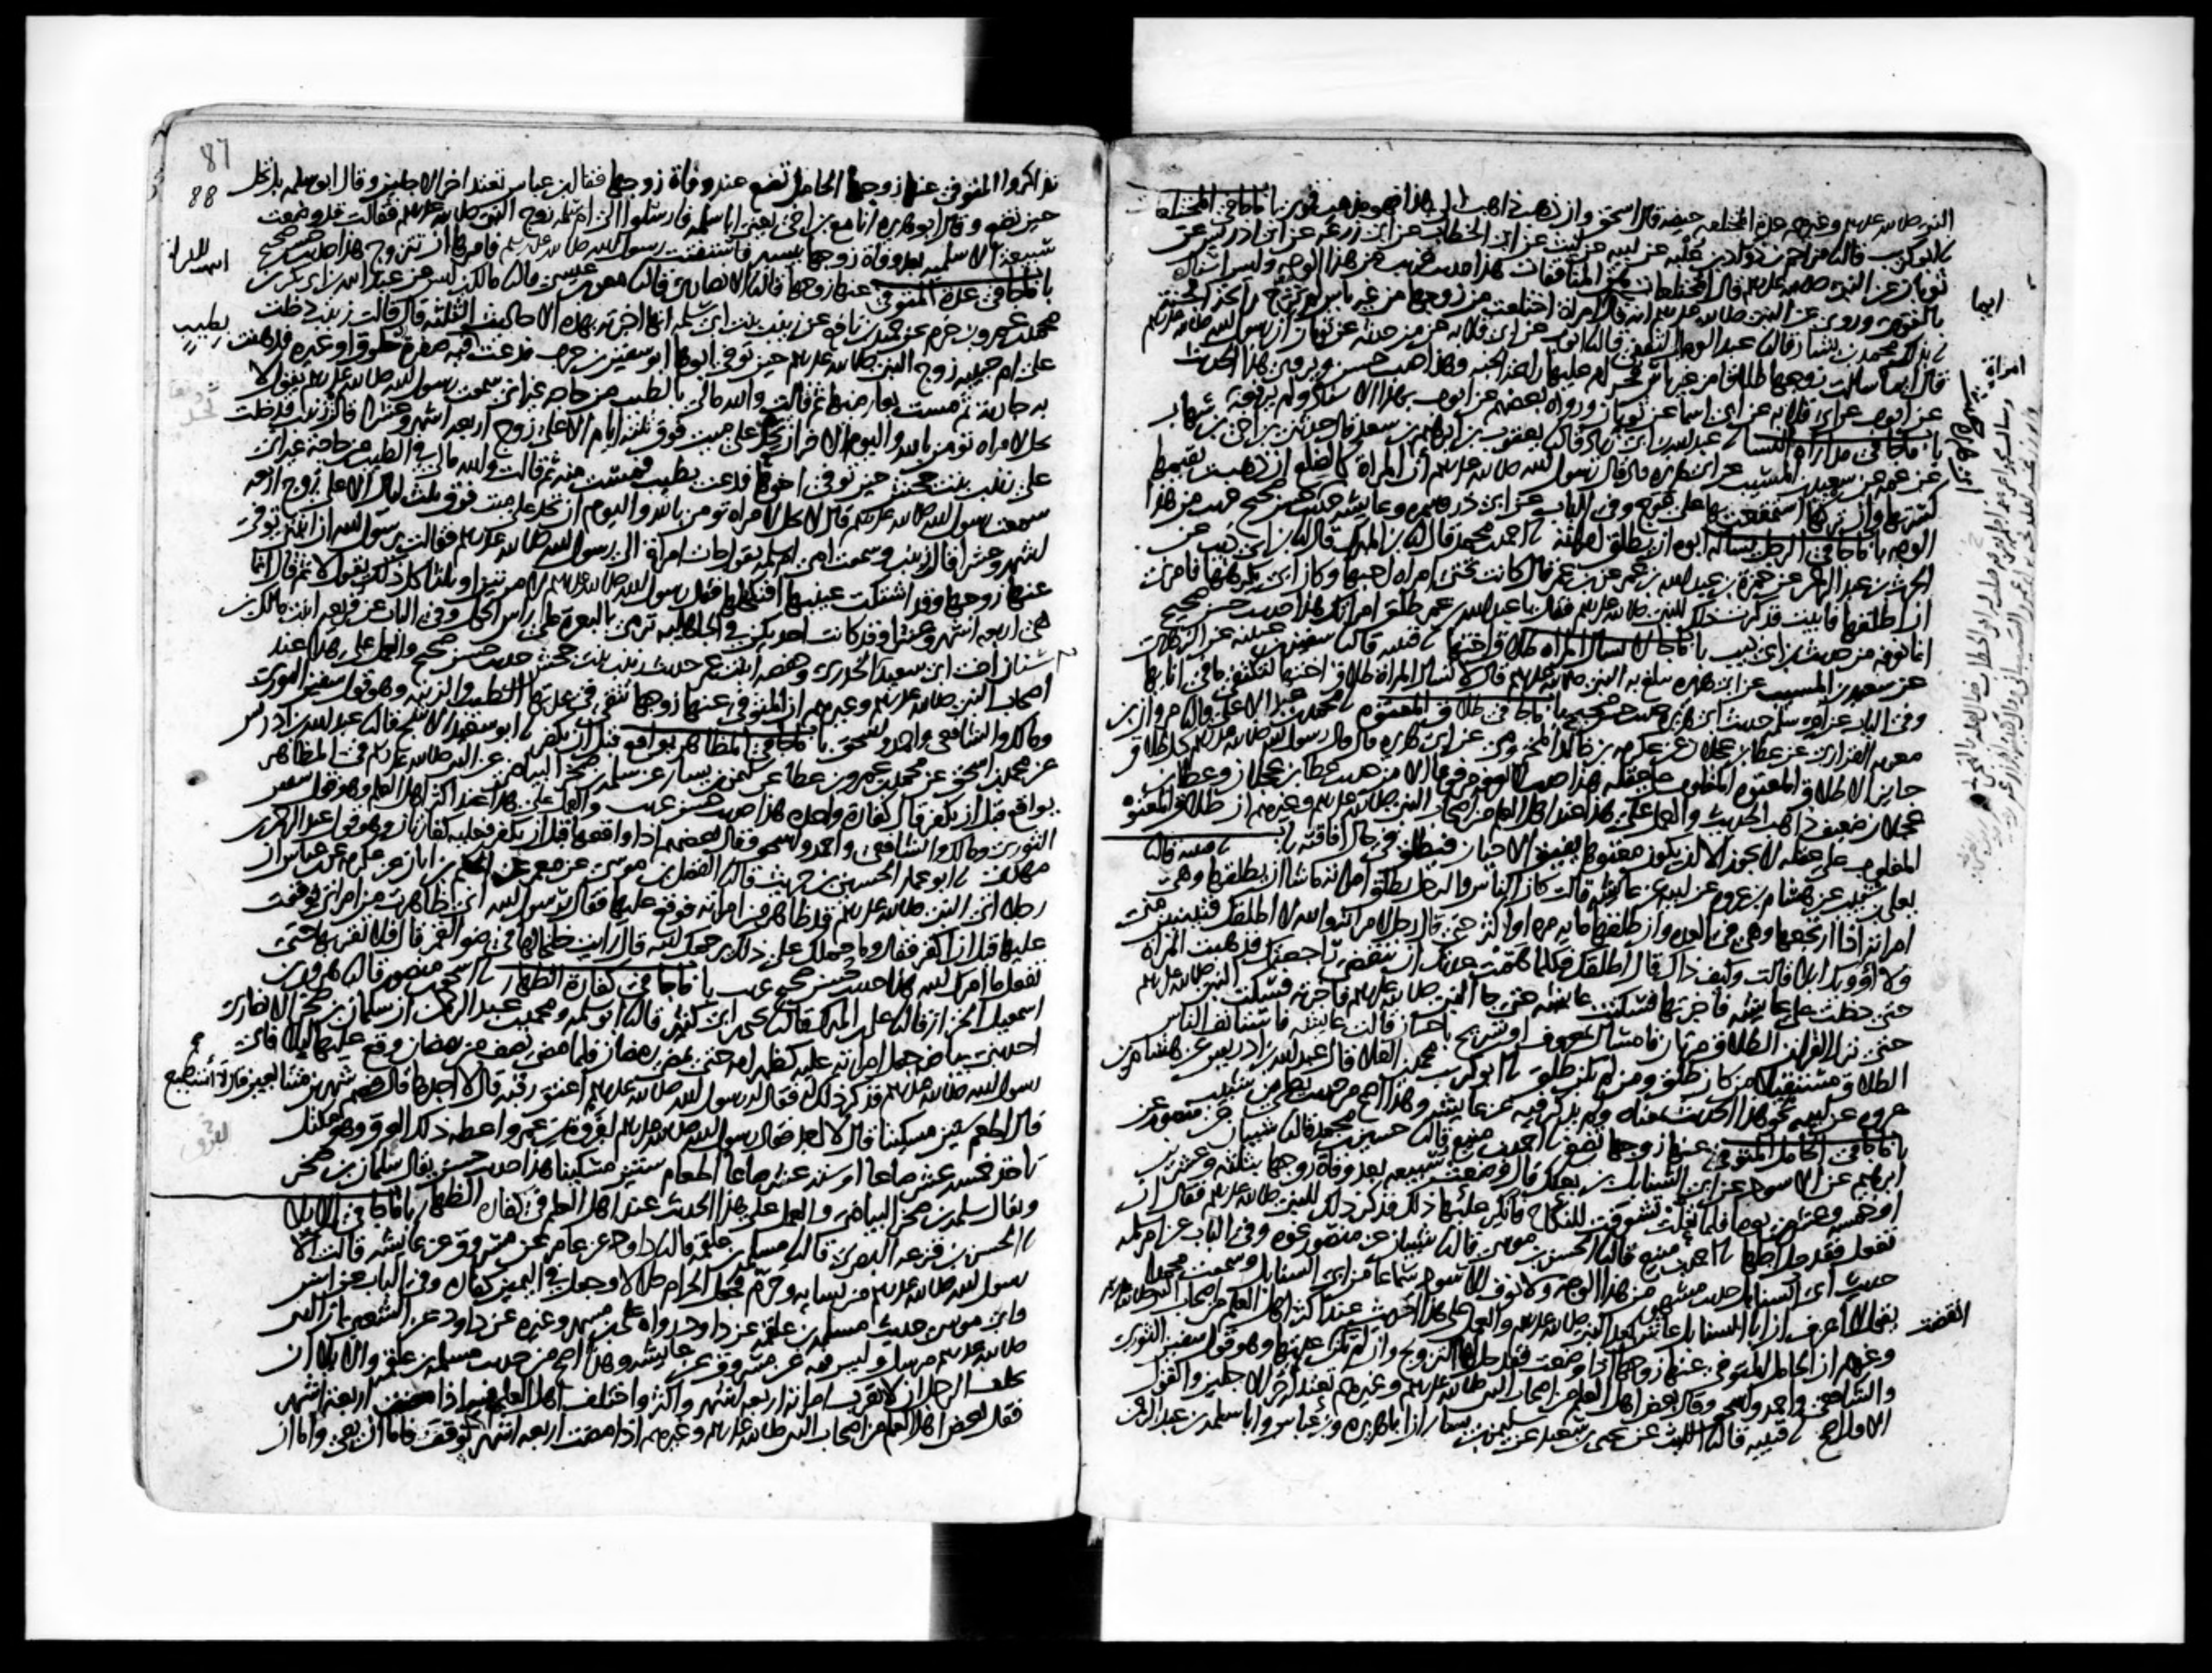 النبي صلى الله عليه وسلم وغيرهم عدة المختلعة حيضة قال اسحق وان ذهب ذاهب الى هذا فهو مذهب قوي باب ما جا في المختلعات
ابو كريب قال مزاحم بن ذواد بن علبة عن ابيه عن ليث عن ابي الخطاب عن ابي زرعة عن ابي ادريس عن
ثوبان عن النبي صلى الله عليه وسلم قال المختلعات هن المنافقات هذا حديث غريب من هذا الوجه وليس اسناده
بالقوي وروي عن النبي صلى الله عليه وسلم انه قال ايما امراة اختلعت من زوجها من غير باس لم ترح رائحة الجنة
محمد بن بشار قال عبد الوهاب الثقفي قال ايوب عن ابي قلابة عن من حدثه عن ثوبان ان رسول الله صلى الله عليه وسلم
قال ايما سالت زوجها طلاقا من غير باس فحرام عليها رائحة الجنة وهذا حديث حسن ويروى هذا الحديث
عن ايوب عن ابي قلابة عن ابي اسما عن ثوبان ورواه بعضهم عن ايوب بهذا الاسناد ولم يرفعه
باب ما جا في مداراة النسا عبد الله بن ابي زياد قال يعقوب بن ابراهيم بن سعد قال حدثني ابن اخي بن شهاب
عن عمه عن سعيد بن المسيب عن ابي هريرة قال قال رسول الله صلى الله عليه وسلم ان المراة كالضلع ان ذهبت تقيمها
كسرتها وان تركتها استمتعت بها على عوج وفي الباب عن ابي ذر وسمرة وعايشة حديث حسن صحيح غريب من هذا
الوجه باب ما جا في الرجل يساله ابوه ان يطلق امراته احمد بن محمد قال ابن المبارك قال ابن ابي ذيب عن
الحرث بن عبد الرحمن عن حمزة بن عبد الله بن عمر عن بن عمر قال كانت تحتي امراة احبها وكان ابي يكرهها فامرني
ان اطلقها فابيت فذكرت ذلك للنبي صلى الله عليه وسلم فقال يا عبد الله بن عمر طلق امراتك هذا حديث حسن صحيح
انما نعرفه من حديث بن ابي ذيب باب ما جا لا تسال المراة طلاق اختها قتيبة قال سفيان بن عيينة عن الزهري
عن سعيد بن المسيب عن ابي هريرة يبلغ به النبي صلى الله عليه وسلم قال لا تسال المراة طلاق اختها لتكتفئ ما في انايها
وفي الباب عن ام سلمة حديث ابي هريرة حديث حسن صحيح باب ما جا في طلاق المعتوه محمد بن عبد الاعلى قال مروان بن
معوية الفزاري عن عطا بن عجلان عن عكرمة بن خالد المخزومي عن ابي هريرة قال قال رسول الله صلى الله عليه وسلم كل طلاق
جايز الا طلاق المعتوه المغلوب على عقله هذا حديث لا نعرفه مرفوعا الا من حديث عطا بن عجلان وعطا بن
عجلان ضعيف ذاهب الحديث والعمل على هذا عند اهل العلم من اصحاب النبي صلى الله عليه وسلم وغيرهم ان طلاق المعتوه
المغلوب على عقله لا يجوز الا ان يكون معتوها يفيق الاحيان فيطلق في حال افاقته باب قتيبة قال
يعلى بن شبيب عن هشام بن عروة عن ابيه عن عايشة قالت كان الناس والرجل يطلق امراته ما شا ان يطلقها وهي
امراته اذا ارتجعها وهي في العدة وان طلقها ماية مرة او اكثر حتى قال رجل لامراته والله لا اطلقك فتبيني مني
ولا اؤويك ابدا قالت وكيف ذاك قال اطلقك فكلما همت عدتك ان تنقضي راجعتك فذهبت المراة
حتى دخلت على عايشة فاخبرتها فسكتت عايشة حتى جا النبي صلى الله عليه وسلم فاخبرته فسكت النبي صلى الله عليه وسلم
حتى نزل القران الطلاق مرتان فامساك بمعروف او تسريح باحسان قالت عايشة فاستانف الناس
الطلاق مستقبلا من كان طلق ومن لم يكن طلق ابو كريب محمد بن العلا قال عبد الله بن ادريس عن هشام بن
عروة عن ابيه نحو هذا الحديث بمعناه ولم يذكر فيه عن عايشة وهذا اصح من حديث يعلى بن شبيب
باب ما جا في الحامل المتوفى عنها زوجها تضع احمد بن منيع قال حسين بن محمد قال شيبان عن منصور عن
ابرهيم عن الاسود عن ابي السنابل بن بعكك قال وضعت سبيعة بعد وفاة زوجها بثلثة وعشرين
او خمسة وعشرين يوما فلما تعلت تشوفت للنكاح فانكر عليها ذلك فذكر ذلك للنبي صلى الله عليه وسلم فقال ان
تفعل فقد حل اجلها احمد بن منيع قال الحسن بن موسى قال شيبان عن منصور نحوه وفي الباب عن ام سلمة
حديث ابي السنابل حديث مشهور من هذا الوجه ولا نعرف للاسود سماعا من ابي السنابل وسمعت محمدا
يقول لا اعرف ان ابا السنابل عاش بعد النبي صلى الله عليه وسلم والعمل على هذا الحديث عند اكثر اهل العلم من اصحاب النبي صلى الله عليه وسلم
وغيرهم ان الحامل المتوفى عنها زوجها اذا وضعت فقد حل لها التزويج وان لم تكن انقضت عدتها وهو قول سفين الثوري
والشافعي واحمد واسحق وقال بعض اهل العلم من اصحاب النبي صلى الله عليه وسلم وغيرهم تعتد اخر الاجلين والقول
الاول اصح قتيبة قال الليث عن يحيى بن سعيد عن سليمن بن يسار ان ابا هريرة وبن عباس وابا سلمة بن عبد الرحمن
ايما
امراة
87
88
تذاكروا المتوفى عنها زوجها الحامل تضع عند وفاة زوجها فقال ابن عباس تعتد اخر الاجلين وقال ابو سلمة بل تحل
حين تضع وقال ابو هريرة انا مع بن اخي يعني ابا سلمة فارسلوا الى ام سلمة زوج النبي صلى الله عليه وسلم فقالت قد وضعت
سبيعة الاسلمية بعد وفاة زوجها بيسير فاستفتت رسول الله صلى الله عليه وسلم فامرها ان تتزوج هذا حديث حسن صحيح
باب ما جا في عدة المتوفى عنها زوجها قال الانصاري قال معن بن عيسى قال مالك بن انس عن عبد الله بن ابي بكر بن
محمد بن عمرو بن حزم عن حميد بن نافع عن زينب بنت ابي سلمة انها اخبرته بهذه الاحاديث الثلثة قال قالت زينب دخلت
على ام حبيبة زوج النبي صلى الله عليه وسلم حين توفي ابوها ابو سفين بن حرب فدعت فيه صفرة خلوق او غيره فدهنت
به جارية ثم مست بعارضيها ثم قالت والله مالي بالطيب من حاجة غير اني سمعت رسول الله صلى الله عليه وسلم يقول لا
يحل لامراة تومن بالله واليوم الاخر ان تحد على ميت فوق ثلثة ايام الا على زوج اربعة اشهر وعشرا قالت زينب فدخلت
على زينب بنت جحش حين توفي اخوها فدعت بطيب فمست منه ثم قالت والله مالي في الطيب من حاجة غير اني
سمعت رسول الله صلى الله عليه وسلم قال لا يحل لامراة تومن بالله واليوم ان تحد على ميت فوق ثلث ليال الا على زوج اربعة
اشهر وعشرا قالت زينب وسمعت امي ام سلمة تقول جات امراة الى رسول الله صلى الله عليه وسلم فقالت يرسول الله ان ابنتي توفي
عنها زوجها وقد اشتكت عينيها افنكحلها فقال رسول الله صلى الله عليه وسلم لا مرتين او ثلثا كل ذلك يقول لا ثم قال انما
هي اربعة اشهر وعشرا وقد كانت احديكن في الجاهلية ترمي بالبعرة على راس الحول وفي الباب عن فريعة ابنة مالك بن
سنان اخت ابي سعيد الخدري وحفصة ابنت عمر حديث زينب بنت جحش حديث حسن صحيح والعمل على هذا عند
اصحاب النبي صلى الله عليه وسلم وغيرهم ان المتوفى عنها زوجها تتقي في عدتها الطيب والزينة وهو قول سفين الثوري
ومالك والشافعي واحمد واسحق باب ما جا في المظاهر يواقع قبل ان يكفر ابو سعيد الاشج قال عبد الله بن ادريس
عن محمد بن اسحق عن محمد بن عمرو بن عطا عن سليمن بن يسار عن سلمة بن صخر البياضي عن النبي صلى الله عليه وسلم في المظاهر
يواقع قبل ان يكفر قال كفارة واحدة هذا حديث حسن غريب والعمل على هذا عند اكثر اهل العلم وهو قول سفين
الثوري ومالك والشافعي واحمد واسحق وقال بعضهم اذا واقعها قبل ان يكفر فعليه كفارتان وهو قول عبد الرحمن بن
مهدي ابو عمار الحسين بن حريث قال الفضل بن موسى عن معمر عن الحكم بن ابان عن عكرمة عن بن عباس ان
رجلا اتى النبي صلى الله عليه وسلم قد ظاهر من امراته فوقع عليها فقال يرسول الله اني ظاهرت من امراتي فوقعت
عليها قبل ان اكفر فقال وما حملك على ذلك يرحمك الله قال رايت خلخالها في ضو القمر قال فلا تقربها حتى
تفعل ما امرك الله هذا حديث حسن صحيح غريب باب ما جا في كفارة الظهار اسحق بن منصور قال هرون بن
اسمعيل الخزاز قال علي بن المبارك قال يحيى بن ابي كثير قال ابو سلمة ومحمد بن عبد الرحمن ان سلمان بن صخر الانصاري
احد بني بياضة جعل امراته عليه كظهر امه حتى يمضي رمضان فلما مضى نصف من رمضان وقع عليها ليلا فاتى
رسول الله صلى الله عليه وسلم فذكر ذلك له فقال له رسول الله صلى الله عليه وسلم اعتق رقبة قال لا اجدها قال فصم شهرين متتابعين قال لا استطيع
قال اطعم ستين مسكينا قال لا اجد فقال رسول الله صلى الله عليه وسلم لفروة بن عمرو اعطه ذلك العرق وهو مكتل
ياخذ خمسة عشر صاعا او ستة عشر صاعا اطعام ستين مسكينا هذا حديث حسن يقال سلمان بن صخر
ويقال سلمة بن صخر البياضي والعمل على هذا الحديث عند اهل العلم في كفارة الظهار باب ما جا في الايلا
الحسن بن قزعة البصري قال مسلمة بن علقمة قال داود عن عامر عن مسروق عن عايشة قالت الى
رسول الله صلى الله عليه وسلم من نسايه وحرم فجعل الحرام حلالا وجعل في اليمين كفارة وفي الباب عن انس
وابي موسى حديث مسلمة بن علقمة عن داود رواه علي بن مسهر وغيره عن داود عن الشعبي ان النبي
صلى الله عليه وسلم مرسل وليس فيه عن مسروق عن عايشة وهذا اصح من حديث مسلمة بن علقمة والايلا ان
يحلف الرجل ان لا يقرب امراته اربعة اشهر واكثر واختلف اهل العلم فيه اذا مضت اربعة اشهر
فقال بعض اهل العلم من اصحاب النبي صلى الله عليه وسلم وغيرهم اذا مضت اربعة اشهر يوقف فاما ان يفي واما ان
بطيب